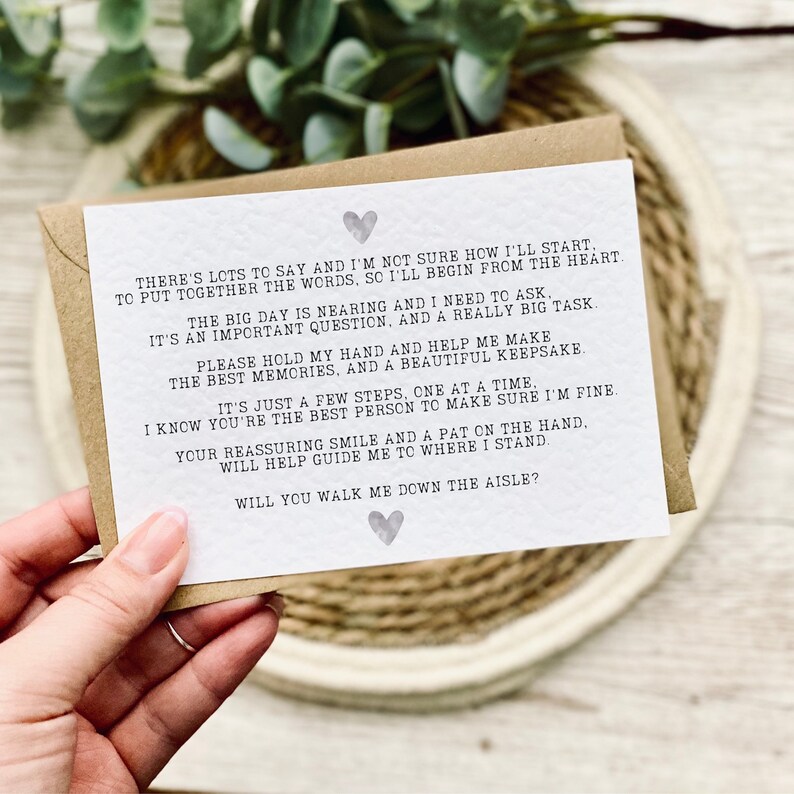 THERE'S LOTS TO SAY AND I'M NOT SURE HOW I'LL START,
TO PUT TOGETHER THE WORDS, SO I'LL BEGIN FROM THE HEART.
THE BIG DAY IS NEARING AND I NEED TO ASK,
IT'S AN IMPORTANT QUESTION, AND A REALLY BIG TASK.
PLEASE HOLD MY HAND AND HELP ME MAKE
THE BEST MEMORIES, AND A BEAUTIFUL KEEPSAKE.
IT'S JUST A FEW STEPS, ONE AT A TIME,
I KNOW YOU'RE THE BEST PERSON TO MAKE SURE I'M FINE.
YOUR REASSURING SMILE AND A PAT ON THE HAND,
WILL HELP GUIDE ME TO WHERE I STAND.
WILL YOU WALK ME DOWN THE AISLE?